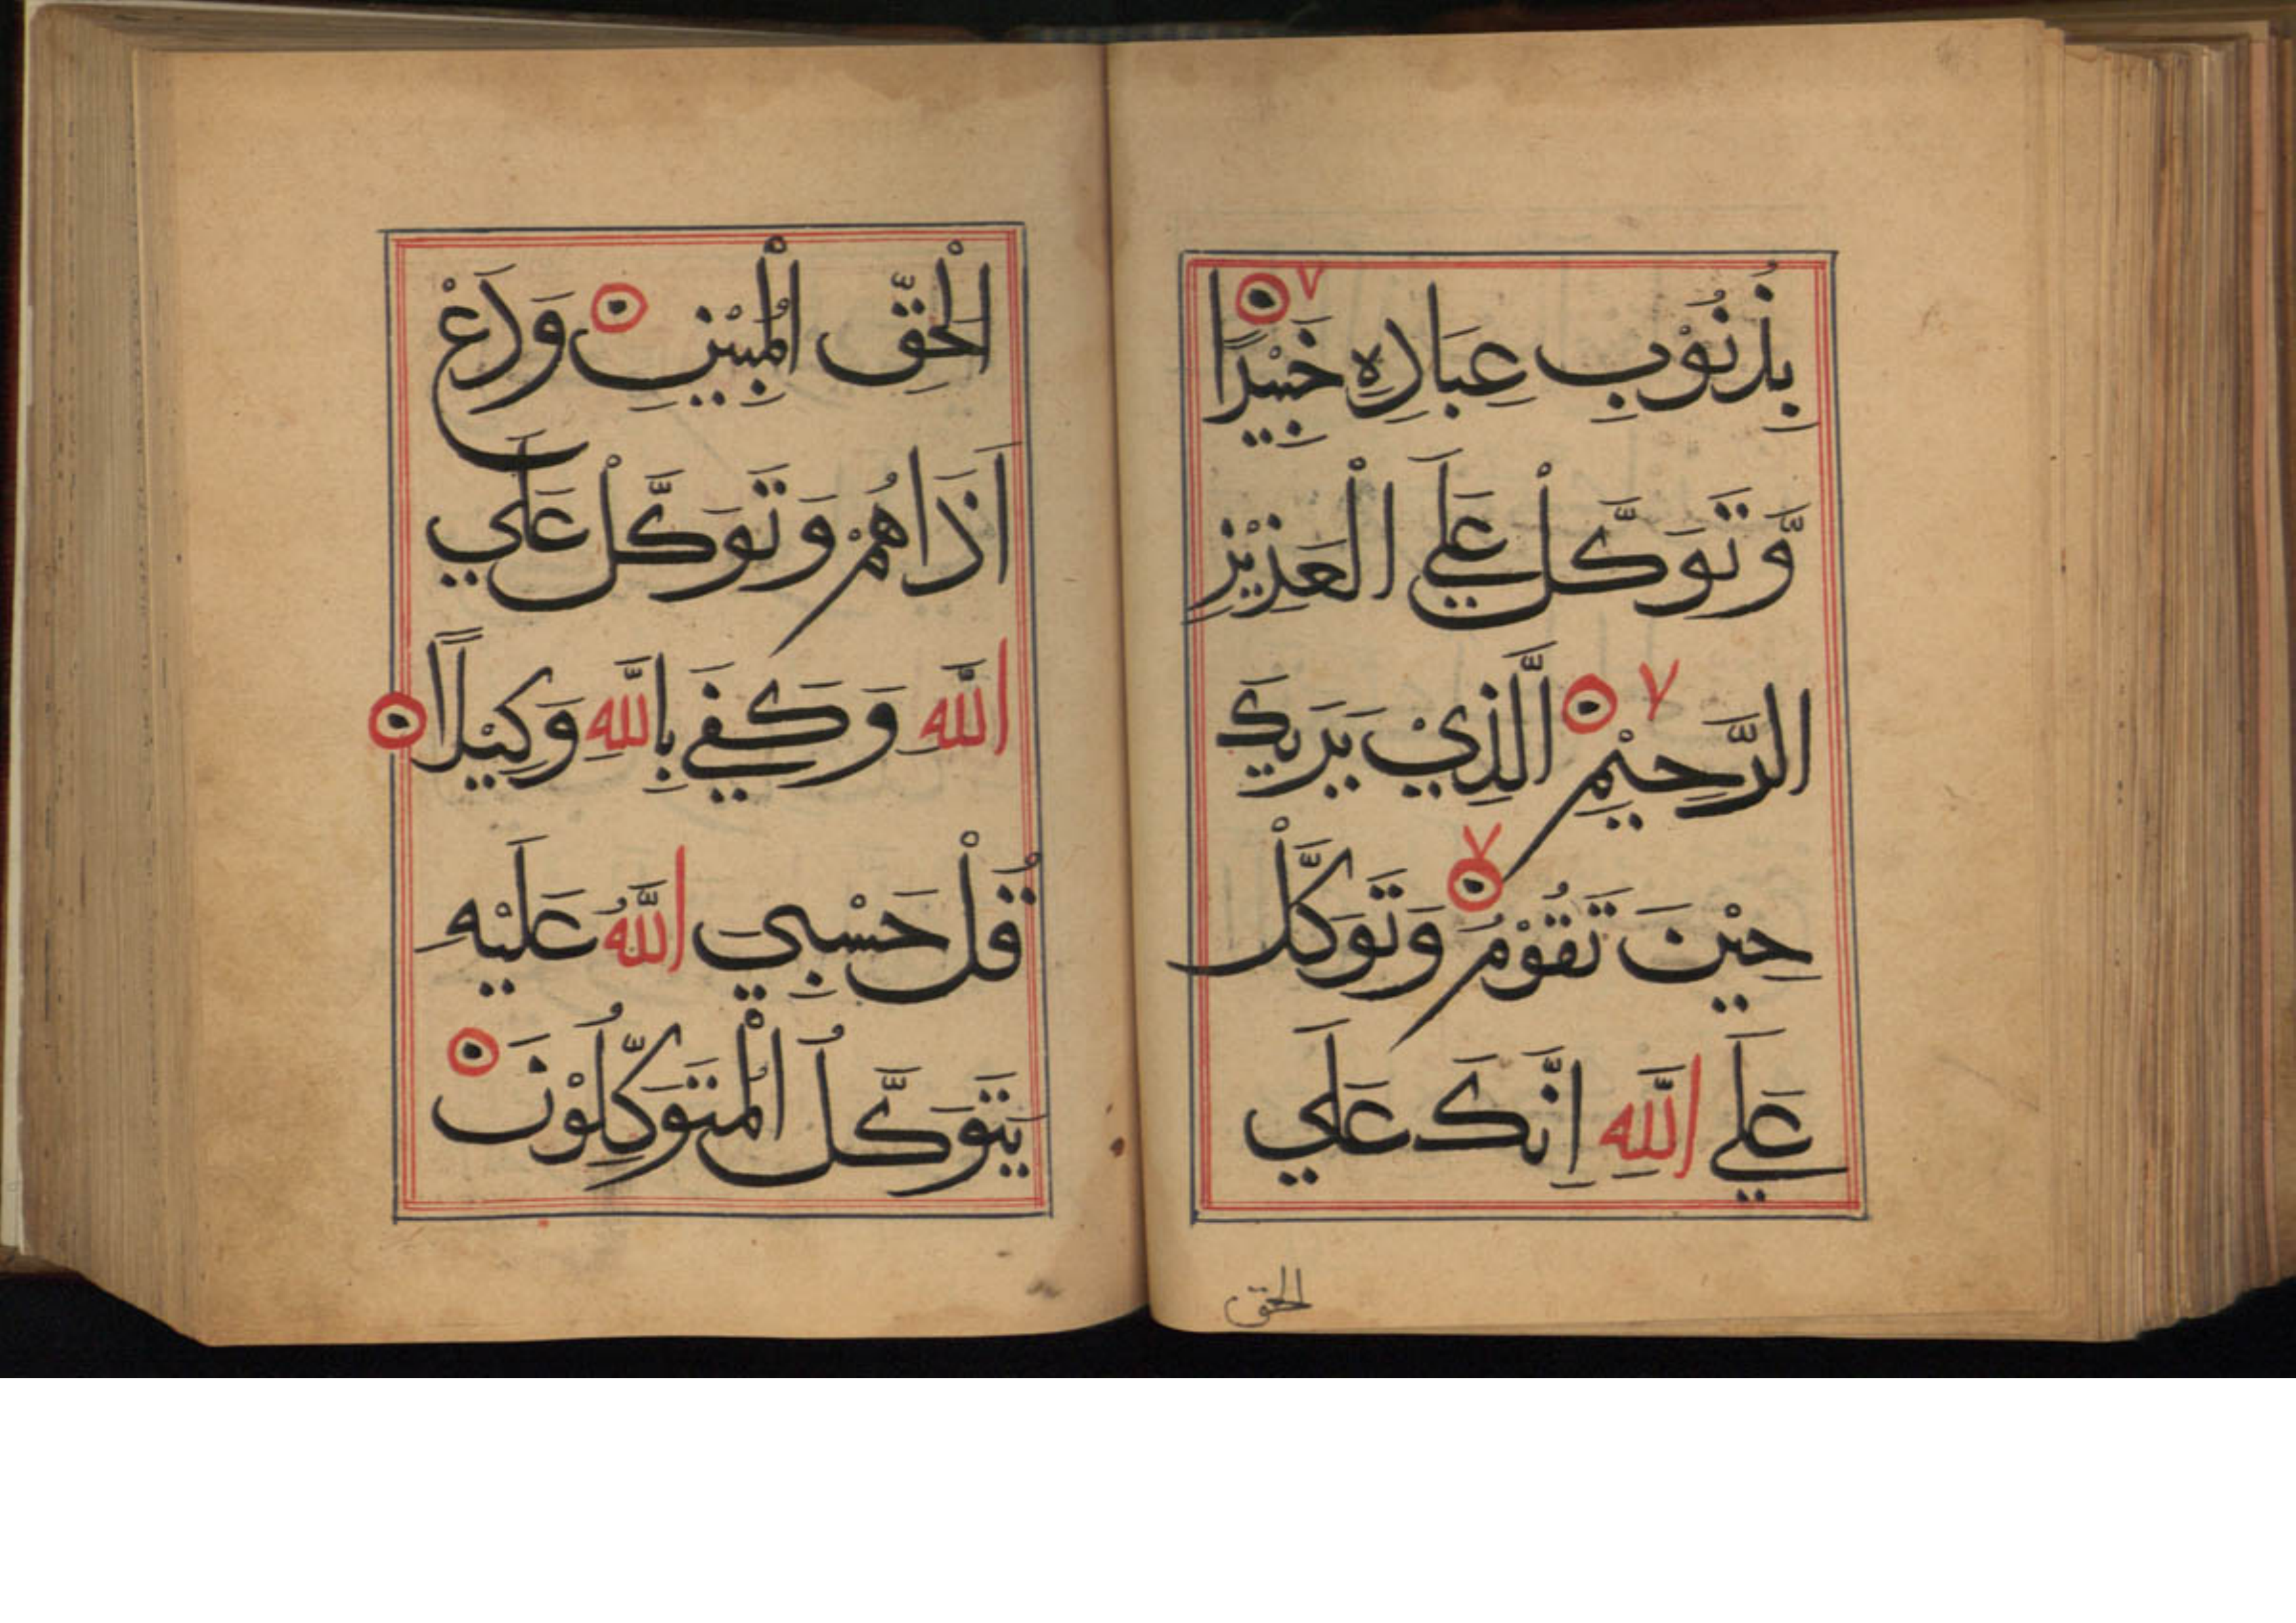 بِذُنُوْبِ عِبَادِهٖ خَبِيْرًا ۷
وَّتَوَكَّلْ عَلَي الْعَزِيْزِ
الرَّحِيْمِ ۷ الَّذِيْ يَرَىكَ
حِيْنَ تَقُوْمُ ۷ وَتَوَكَّلْ
عَلَي اللّٰهِ اِنَّكَ عَلَي
الحق
الْحَقِّ الْمُبِيْنِ وَدَعْ
اَذَاهُمْ وَتَوَكَّلْ عَلَي
اللّٰهِ وَكَفَي بِاللّٰهِ وَكِيْلًا
قُلْ حَسْبِيَ اللّٰهُ عَلَيْهِ
يَتَوَكَّلُ الْمُتَوَكِّلُوْنَ